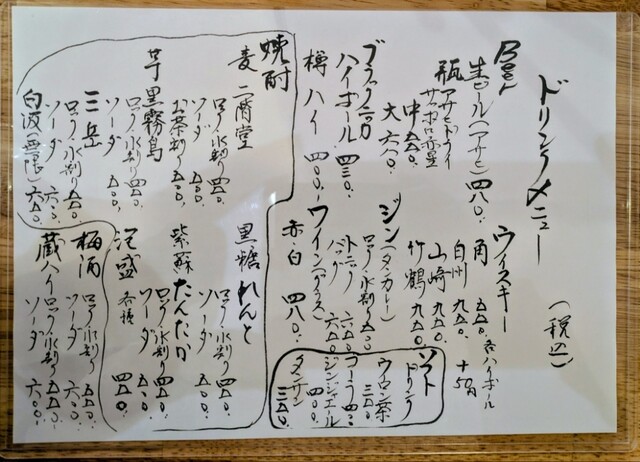 ドリンクメニュー
(税込)
Beer
生ビール(アサヒ) 四八〇.
瓶 アサヒドライ
サッポロ赤星
中 五五〇.
大 六六〇.
ブラックニッカ
ハイボール 四三〇.
樽ハイ 四〇〇.
ウイスキー
角 五五〇. 各ハイボール
+50円
白州 九五〇.
山崎 九五〇.
竹鶴 九五〇.
ジン(タンカレー)
ロック・水割り 五〇〇.
トニック 六五〇.
バック 六五〇.
ワイン(グラス)
赤・白 四八〇.
ソフト
ドリンク
ウーロン茶
三五〇.
コーラ 四〇〇.
ジンジャエール
四〇〇.
タンサン
三五〇.
焼酎
麦 二階堂
ロック・水割り 四五〇.
ソーダ 五〇〇.
お茶割り 五〇〇.
芋 黒霧島
ロック・水割り 四五〇.
ソーダ 五〇〇.
三岳
ロック・水割り 五五〇.
ソーダ 六〇〇.
白波(無限) 六五〇.
黒糖 れんと
ロック・水割り 四五〇.
ソーダ 五〇〇.
紫蘇 たんたか
ロック・水割り 四五〇.
ソーダ 五〇〇.
泡盛 各種 四五〇.
梅酒
ロック・水割り 五五〇.
ソーダ 六〇〇.
蔵ハイ
ロック・水割り 五五〇.
ソーダ 六〇〇.